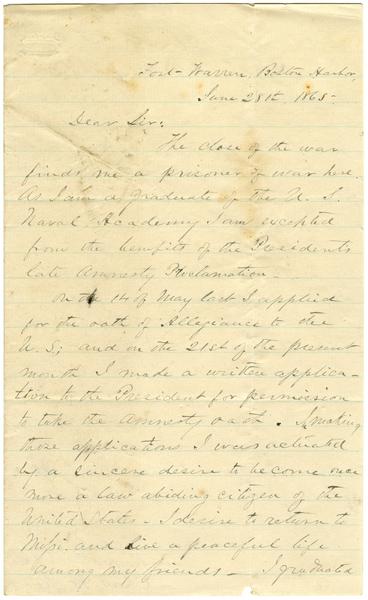 Fort Warren, Boston Harbor,
June 28th, 1865-
Dear Sir:
The close of the war
finds me a prisoner of war here.
As I am a graduate of the U. S.
Naval Academy I am excepted
from the benefits of the Presidents
late Amnesty Proclamation-
On the 14 of May last I applied
for the oath of Allegiance to the
U.S; and on the 21st of the present
month I made a written applica-
tion to the President for permission
to take the amnesty oath. In making
those applications I was actuated
by a sincere desire to become once
more a law abiding citizen of the
United States- I desire to return to
Missi. and live a peaceful life
among my friends- I graduated